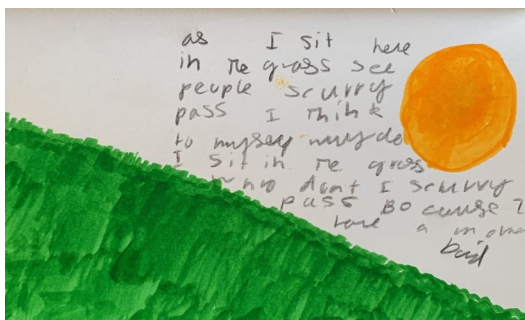 as I sit here
in The grass see
people scurry
pass I Think
to myself why do
I sit in The grass
dont I scurry
pass BO cause I
have a